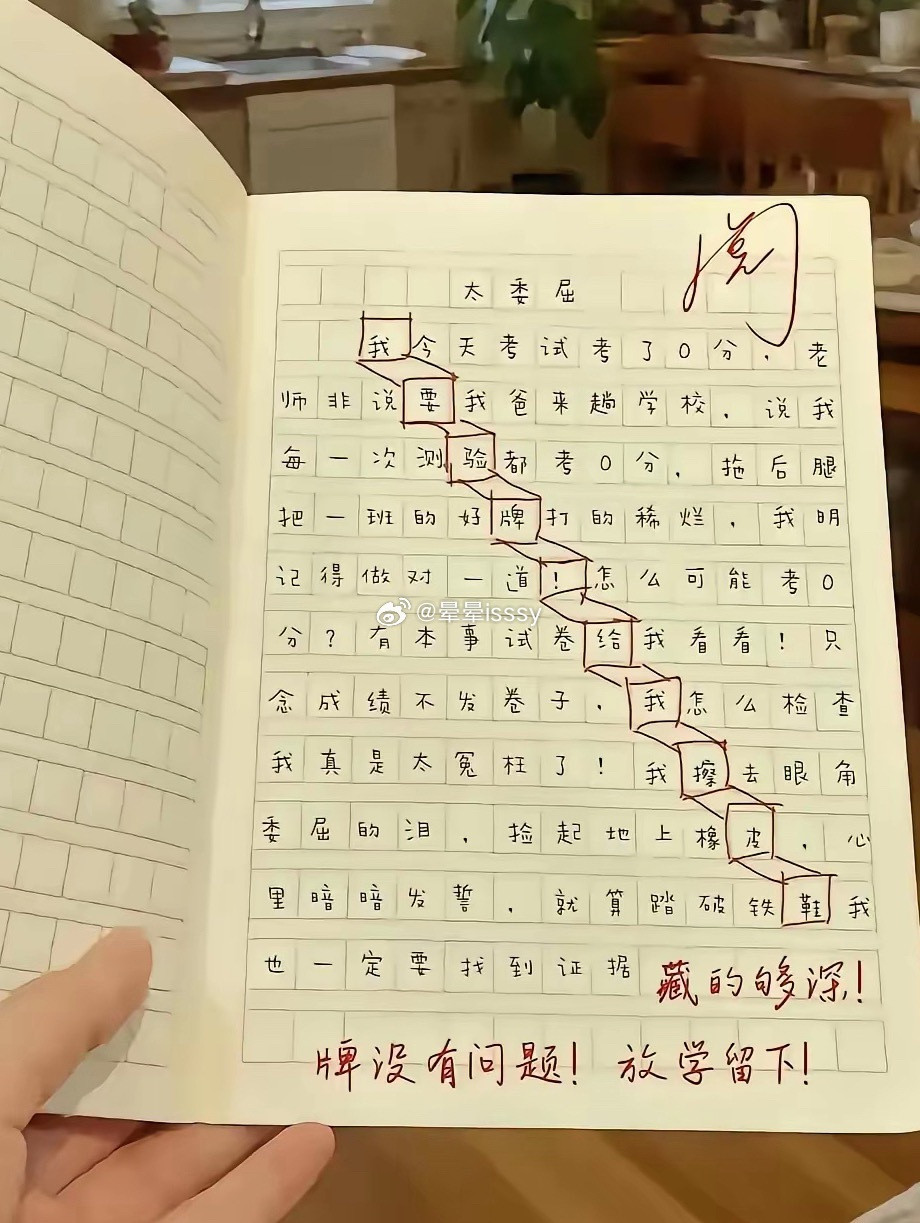 太委屈
阅
我今天考试考了0分，老
师非说要我爸来趟学校，说我
每一次测验都考0分，拖后腿
把一班的好牌打的稀烂，我明
记得做对一道！怎么可能考0
分？有本事试卷给我看看！只
念成绩不发卷子，我怎么检查
我真是太冤枉了！我擦去眼角
委屈的泪，捡起地上橡皮，心
里暗暗发誓，就算踏破铁鞋我
也一定要找到证据
藏的够深！
牌没有问题！放学留下！
@晕晕isssy